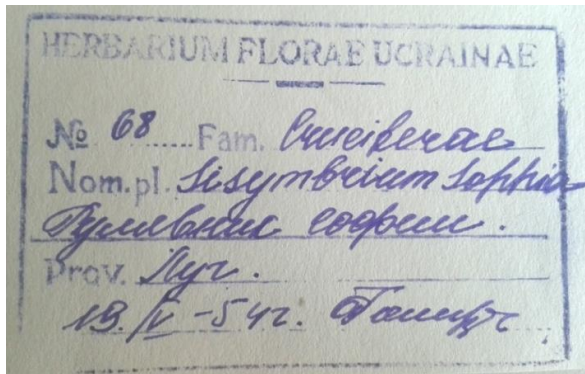 HERBARIUM FLORAE UCRAINAE
№ 68 Fam. Cruciferae
Nom. pl. Sisymbrium Sophia
Гулявник софии.
Prov. Луг.
19. /V -54г.